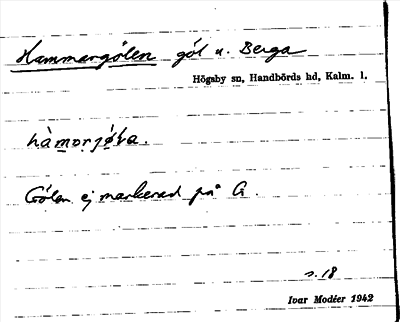 Hammargölen göl u. Berga
Högsby sn, Handbörds hd, Kalm. l.
Gölen ej markerad på G.
s. 18
Ivar Modéer 1942